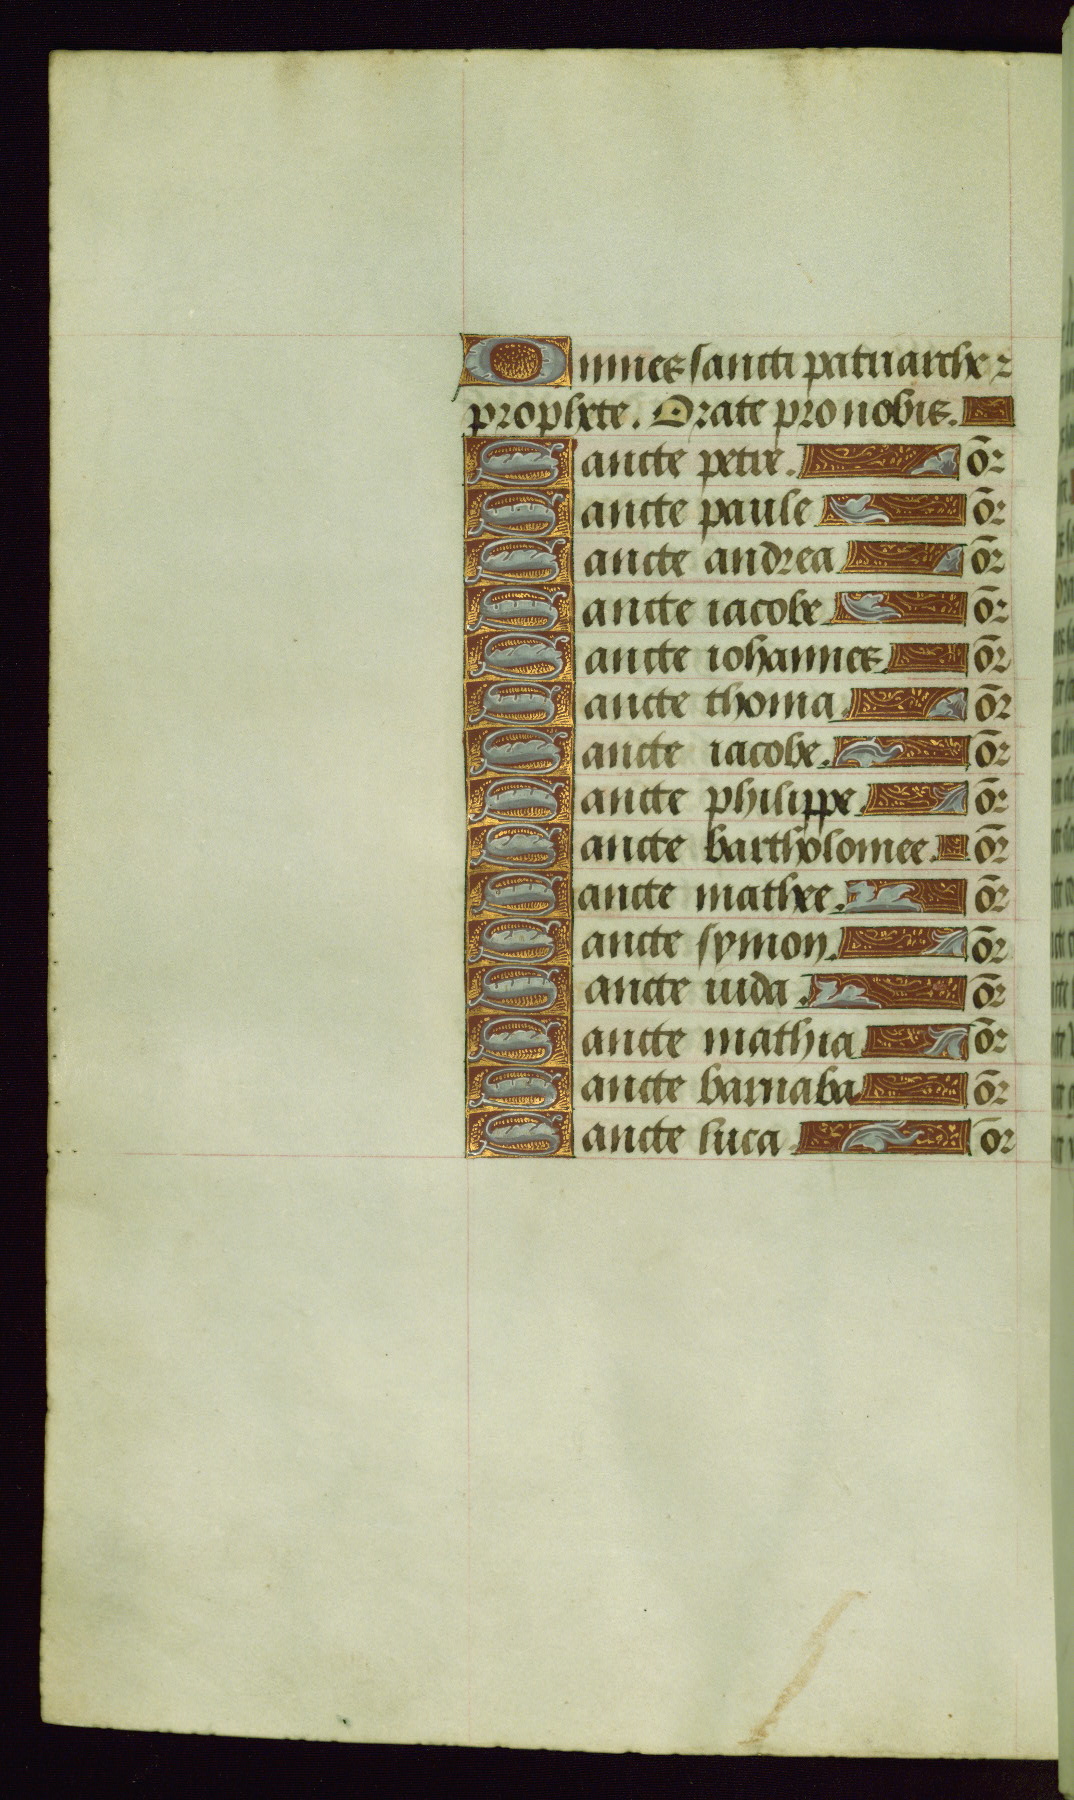 Omnes sancti patriarche ⁊
prophete. Orate pro nobis.
Sancte petre. or̄
Sancte paule or̄
Sancte andrea or̄
Sancte iacobe or̄
Sancte iohannes or̄
Sancte thoma or̄
Sancte iacobe. or̄
Sancte philippe or̄
Sancte bartholomee. or̄
Sancte mathee. or̄
Sancte symon. or̄
Sancte iuda. or̄
Sancte mathia or̄
Sancte barnaba or̄
Sancte luca or̄